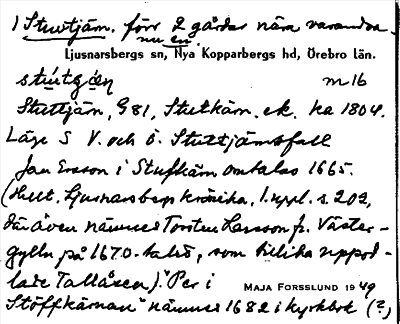 1 Stuttjärn. förr 2 gårdar nära varandra.
nu en.
Ljusnarsbergs sn, Nya Kopparbergs hd, Örebro län.
m 16
Stuttjärn, G 81, Stutkärn. ek. ka 1804.
Läge S V. och Ö. Stuttjärnsfall
Jan Ersson i Stufkärn omtalas 1665.
(Hult, Ljusnarsbergs krönika, 1. uppl. s. 202,
där även nämnes Torsten Larsson fr. Väster-
gylln på 1670-talet, som tillika uppod-
lade Tallåsen). "Per i
MAJA FORSSLUND 1949
Stöffkärnan" nämnes 1682 i kyrkbok (?)